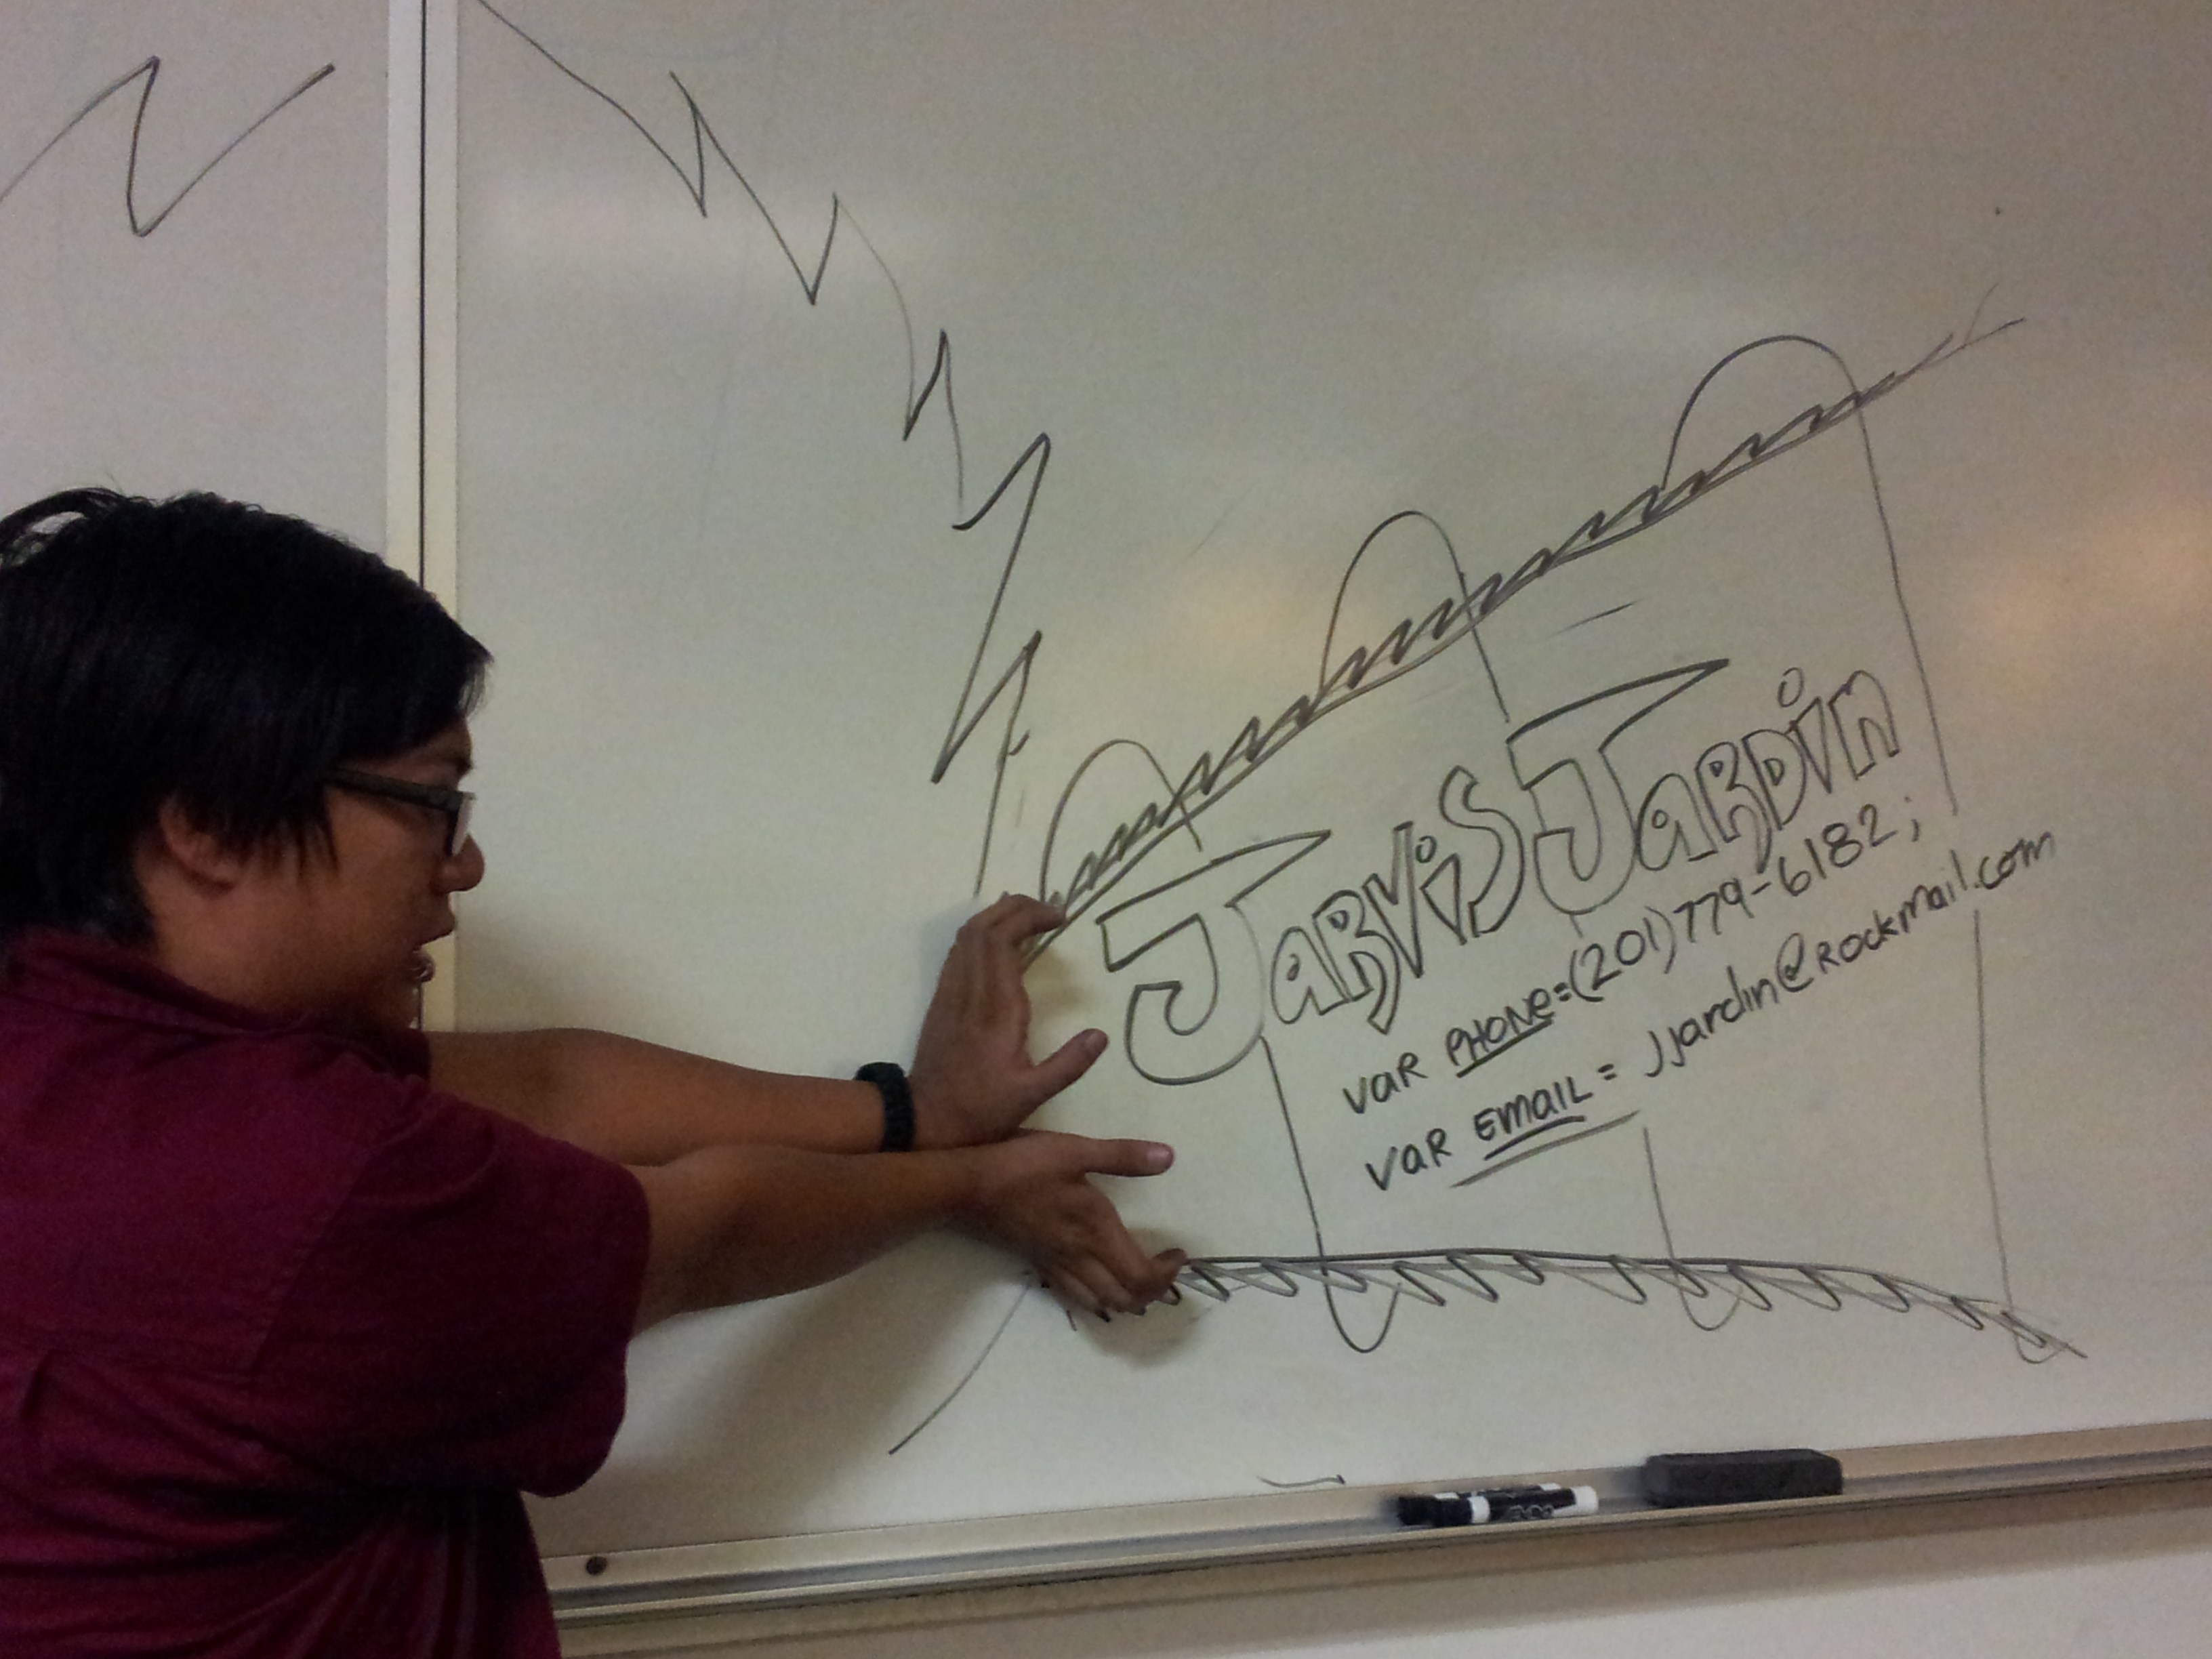 JaRViS JaRDin
vaR PHONe=(201)779-6182;
vaR EmaiL = jjardin@Rockmail.com